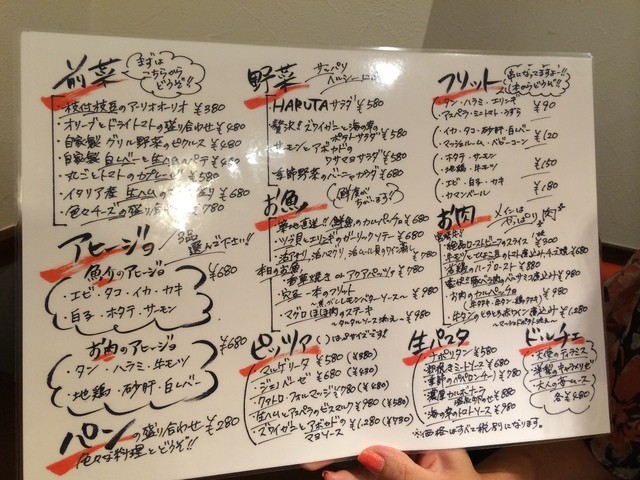 前菜
まずは
こちらから
どうぞ!!
・枝付枝豆のアーリオオーリオ ¥380
・オリーブとドライトマトの盛り合わせ ¥480
・自家製 グリル野菜のピクルス ¥480
・自家製 白レバーと生ハムのパテ ¥450
・丸ごとトマトのカプレーゼ
・イタリア産 生ハム ¥680
・色々チーズの盛り合わせ ¥780
アヒージョ
3品
選んで下さい!!
魚介のアヒージョ ¥680
・エビ・タコ・イカ・カキ
・白子・ホタテ・サーモン
お肉のアヒージョ ¥680
・タン・ハラミ・牛モツ
・地鶏・砂肝・白レバー
パンの盛り合わせ ¥280
色々な料理とどうぞ!!
野菜
サッパリ
ヘルシー
・HARUTAサラダ ¥580
・贅沢!ズワイガニと海の幸の
ポテトサラダ ¥580
・サーモンとアボカドの
ワサビ醤油サラダ ¥580
・季節野菜のバーニャカウダ ¥680
お魚
鮮度が
ちがいます!!
・築地直送!!鮮魚のカルパッチョ ¥680
・ツブ貝とエリンギのガーリックソテー ¥580
・活アサリ、活ハマグリ、活ムール貝のワイン蒸し ¥780
本日のお魚
・香草焼き or アクアパッツァ ¥780
・穴子一本のフリット
¥980
・マグロほほ肉のステーキ
¥980
フリット
串になってますよー!!
1本からどうぞ!!
・タン・ハラミ・エリンギ
・アスパラ・ミニトマト・うずら ¥90
・イカ・タコ・砂肝・白レバー
・マッシュルーム・ベビーコーン ¥120
・ホタテ・サーモン
・地鶏・牛モツ ¥150
・エビ・白子・カキ
・カマンベール ¥180
お肉
メインは
やっぱり
肉
ローストビーフのスライス ¥300
¥680
¥880
¥980
・お肉のカルパッチョ ¥980
・牛タンのとろとろ赤ワイン煮込み ¥1,280
ピッツァ
( )はSサイズです!
・マルゲリータ ¥580 (¥380)
・ジェノベーゼ ¥680 (¥430)
・クワトロ・フォルマッジ ¥780 (¥480)
・生ハムとアスパラのビスマルク ¥980 (¥580)
・ズワイガニとアボカドの ¥1,280 (¥730)
マヨソース
生パスタ
・ナポリタン ¥580
ミートソース ¥680
¥780
・濃厚カルボナーラ
¥880
・海の幸のトマトソース ¥980
ドルチェ
・天使のティラミス
・大人の
各 ¥480
※価格はすべて税別になります。